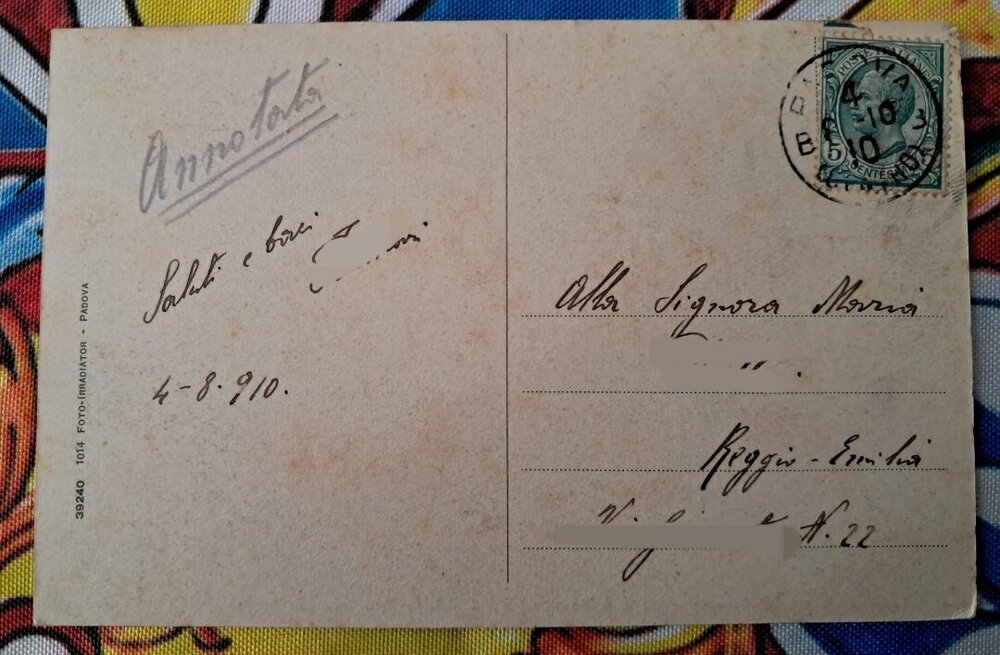 Annotata
Saluti e baci
4-8-910.
39240 1014 FOTO-IRRADIATOR - PADOVA
POSTE ITALIANE
4
10
3
10
5
Alla Signora Maria
Reggio-Emilia
N. 22